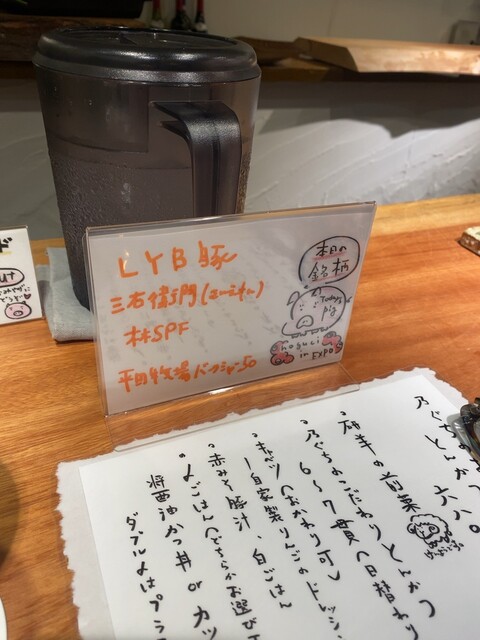 LYB豚
三右衛門(エーコホー)
林SPF
平田牧場バークシャー50
本日の
銘柄
Today's
Pig
noguci
in EXPO
乃ぐちとんかつ 六八。
前菜
乃ぐちのこだわりとんかつ
6～7貫(日替わり
キャベツ(おかわり可)
自家製りんごのドレッシ
赤みそ豚汁、白ごはん
〆ごはん(どちらかお選び下
醤油かつ丼 or カツ
ダブル〆はプラス
ド
ut